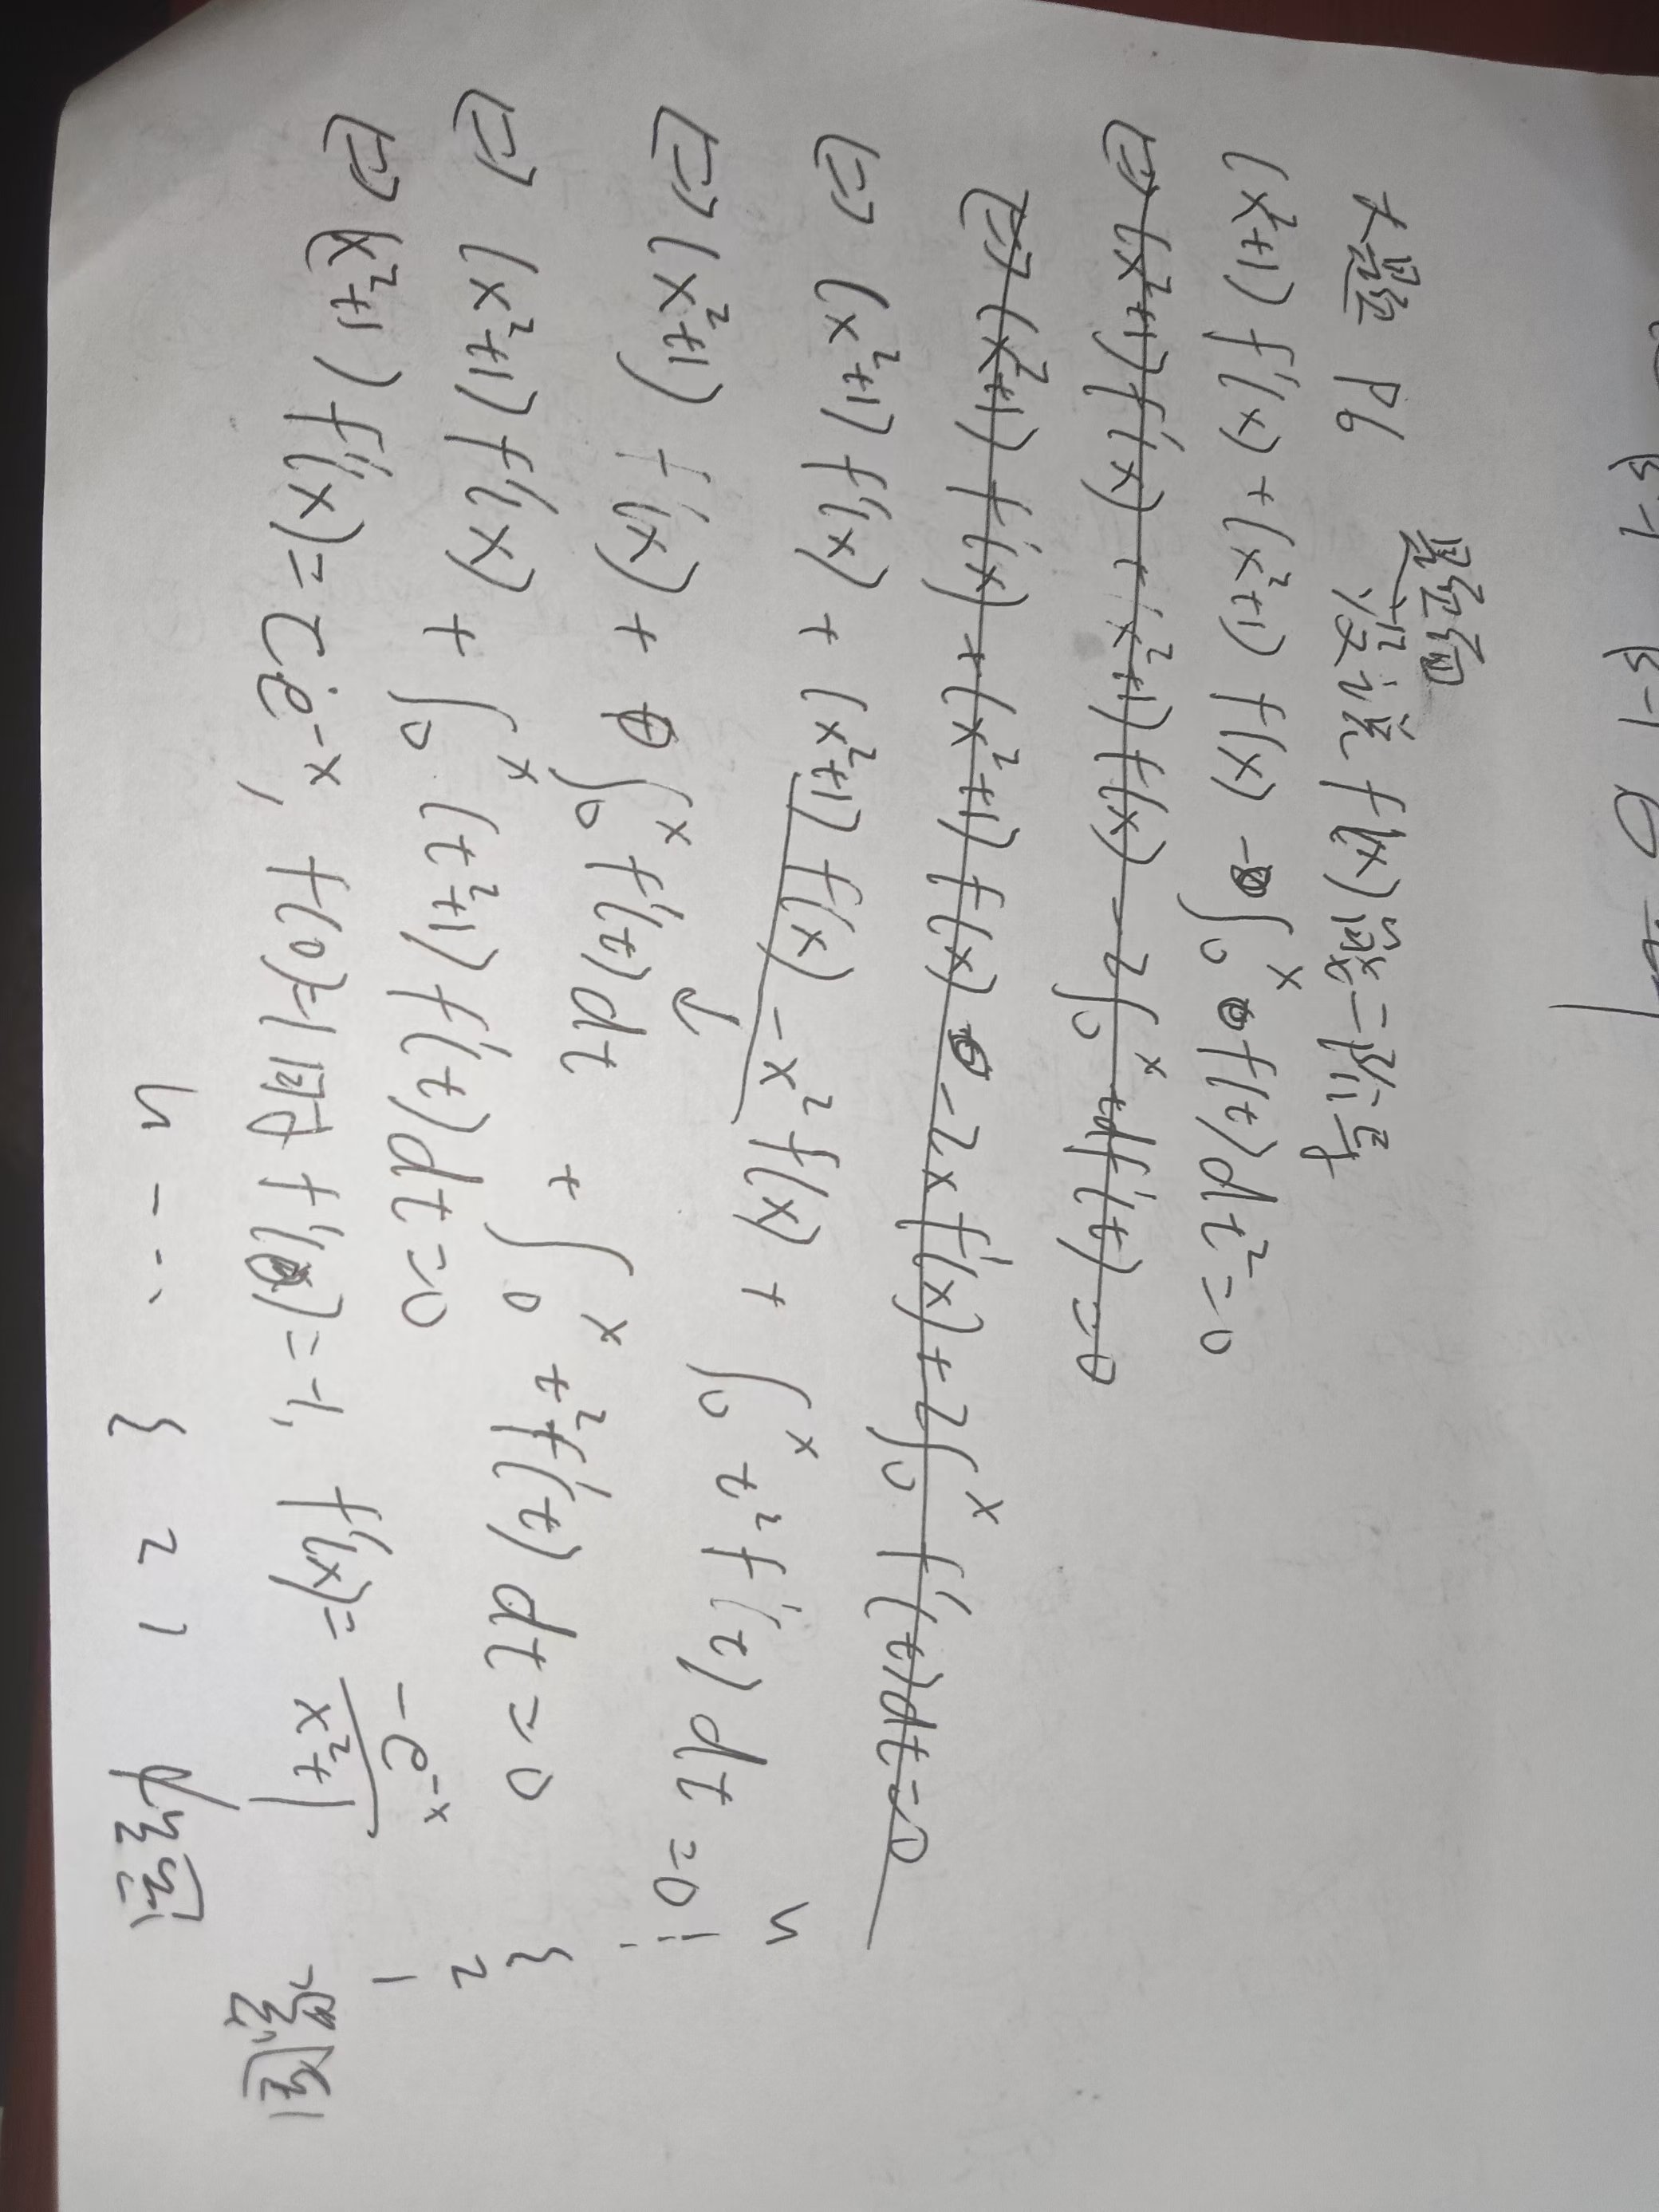 大题 P6 设证 f(x) 满二次可导
(x²+1) f'(x) + (x²+1) f(x) - ∫₀ˣ f(t)dt² = 0
⇔ (x²+1) f'(x) + (x²+1) f(x) - 2∫₀ˣ tdf'(t) = 0
⇔ (x²+1) f'(x) + (x²+1) f(x) - 2x f'(x) + 2∫₀ˣ f'(t)dt = 0
⇔ (x²+1) f'(x) + (x²+1) f(x) - x² f(x) + ∫₀ˣ t² f'(t) dt = 0
⇔ (x²+1) f'(x) + ∫₀ˣ f'(t)dt + ∫₀ˣ t² f'(t) dt = 0
⇔ (x²+1) f'(x) + ∫₀ˣ (t²+1) f'(t)dt = 0
⇔ (x²+1) f'(x) = Ce⁻ˣ, f(0)=1 同时 f'(0)=-1, f'(x) = -e⁻ˣ/(x²+1)
1 2 3 ⋮ n
1 2 3 … n